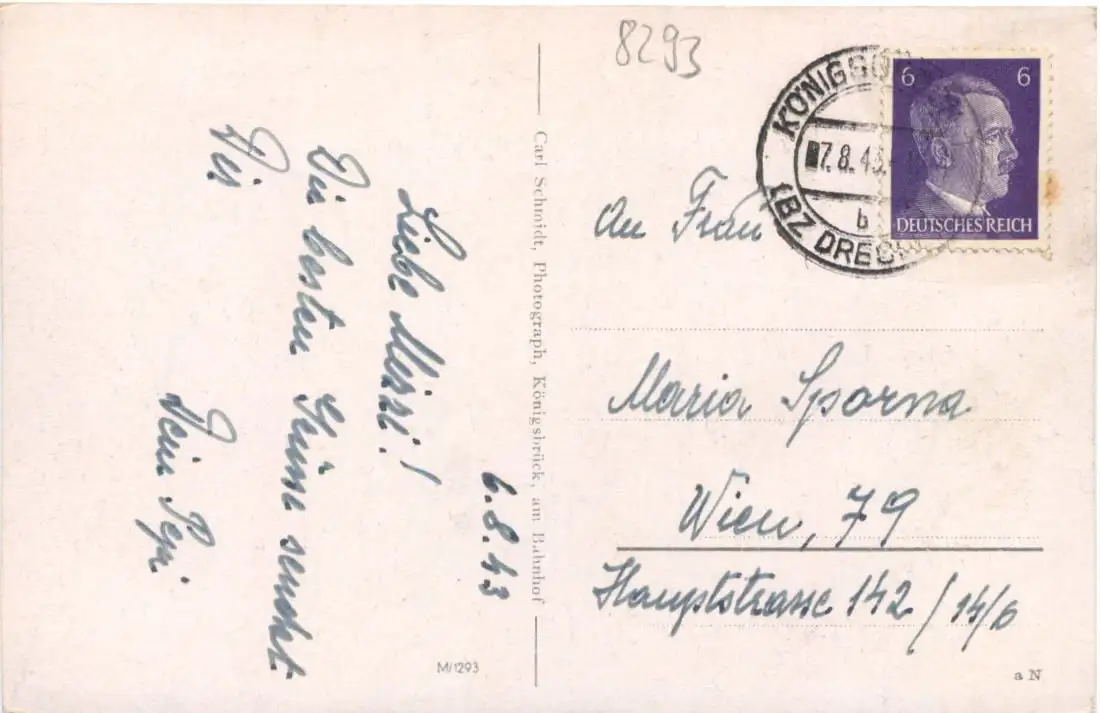 8293
6.8.43
Liebe Mizzi!
Die besten Grüsse sendet
Dir
Dein Pepi
M/1293
Carl Schmidt, Photograph, Königsbrück, am Bahnhof
KÖNIGSB
7.8.43
b
(BZ DRESD
6 6
DEUTSCHES REICH
An Frau
Maria Sporna
Wien, 79
Hauptstrasse 142/14/6
a N